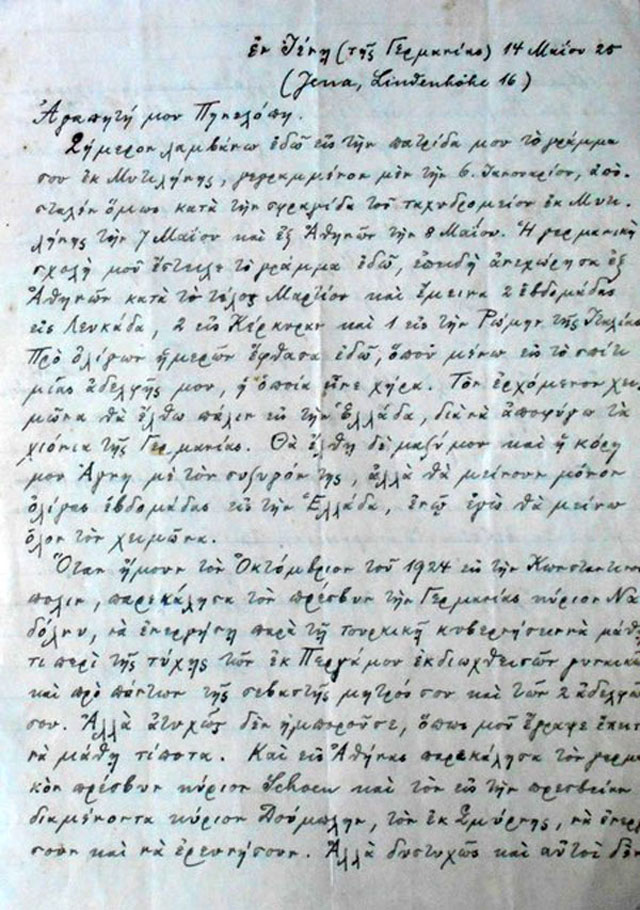 ἐν Ἰένῃ (τῆς Γερμανίας) 14 Μαΐου 25
(Jena, Lindenhöhe 16)
Ἀγαπητή μου Πηνελόπη.
Σήμερον λαμβάνω ἐδῶ εἰς τὴν πατρίδα μου τὸ γράμμα
σου ἐκ Μυτιλήνης, γεγραμμένον μὲν τὴν 6. Ἰανουαρίου, ἀπο-
σταλὲν ὅμως κατὰ τὴν σφραγίδα τοῦ ταχυδρομείου ἐκ Μυτι-
λήνης τὴν 7 Μαΐου καὶ ἐξ Ἀθηνῶν τὴν 8 Μαΐου. Ἡ γερμανικὴ
σχολὴ μοῦ ἔστειλε τὸ γράμμα ἐδῶ, ἐπειδὴ ἀνεχώρησα ἐξ
Ἀθηνῶν κατὰ τὸ τέλος Μαρτίου καὶ ἔμεινα 2 ἑβδομάδας
εἰς Λευκάδα, 2 εἰς Κέρκυραν καὶ 1 εἰς τὴν Ῥώμην τῆς Ἰταλίας
Πρὸ ὀλίγων ἡμερῶν ἔφθασα ἐδῶ, ὅπου μένω εἰς τὸ σπίτι
μίας ἀδελφῆς μου, ἡ ὁποία εἶνε χήρα. Τὸν ἐρχόμενον χει-
μῶνα θὰ ἔλθω πάλιν εἰς τὴν Ἑλλάδα, διὰ νὰ ἀποφύγω τὰ
χιόνια τῆς Γερμανίας. Θὰ ἔλθῃ δὲ μαζύ μου καὶ ἡ κόρη
μου Ἄγνη μὲ τὸν συζυγόν της, ἀλλὰ θὰ μείνουν μόνον
ὀλίγας ἑβδομάδας εἰς τὴν Ἑλλάδα, ἐνῷ ἐγὼ θὰ μείνω
ὅλον τὸν χειμῶνα.
Ὅταν ἤμουν τὸν Ὀκτώμβριον τοῦ 1924 εἰς τὴν Κωνσταντινού
πολιν, παρεκάλησα τὸν πρέσβυν τὴν Γερμανίας κύριον Να
δόλην, νὰ ἐνεργήσῃ παρὰ τῇ τουρκικῇ κυβερνήσει νὰ μάθῃ
τι περὶ τῆς τύχης τῶν ἐκ Περγάμου ἐκδιωχθεισῶν γυναικῶν
καὶ πρὸ πάντων τῆς σεβαστῆς μητρός σου καὶ τῶν 2 ἀδελφῶ
σου. Ἀλλὰ ἀτυχῶς δὲν ἠμποροῦσε, ὅπως μοῦ ἔγραψε
νὰ μάθῃ τίποτα. Καὶ εἰς Ἀθήνας παρεκάλησα τὸν γερμα
κὸν πρέσβυν κύριον Schoen καὶ τὸν εἰς τὴν πρεσβείαν
διαμένοντα κύριον Δούμωλην, τὸν ἐκ Σμύρνης, νὰ ἐνεργ
σουν καὶ νὰ ἐρευνήσουν. Ἀλλὰ δυστυχῶς καὶ αὐτοὶ δὲν